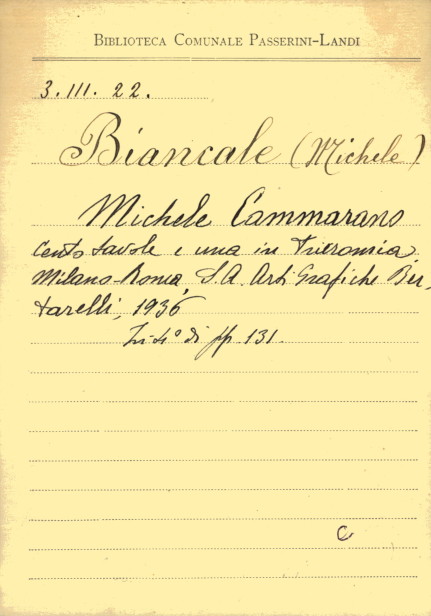 BIBLIOTECA COMUNALE PASSERINI-LANDI
3.III.22.
Biancale (Michele)
Michele Cammarano
Cento tavole e una in tricromia
Milano-Roma, S.A. Arti Grafiche Ber
tarelli, 1936
di pp. 131.
C